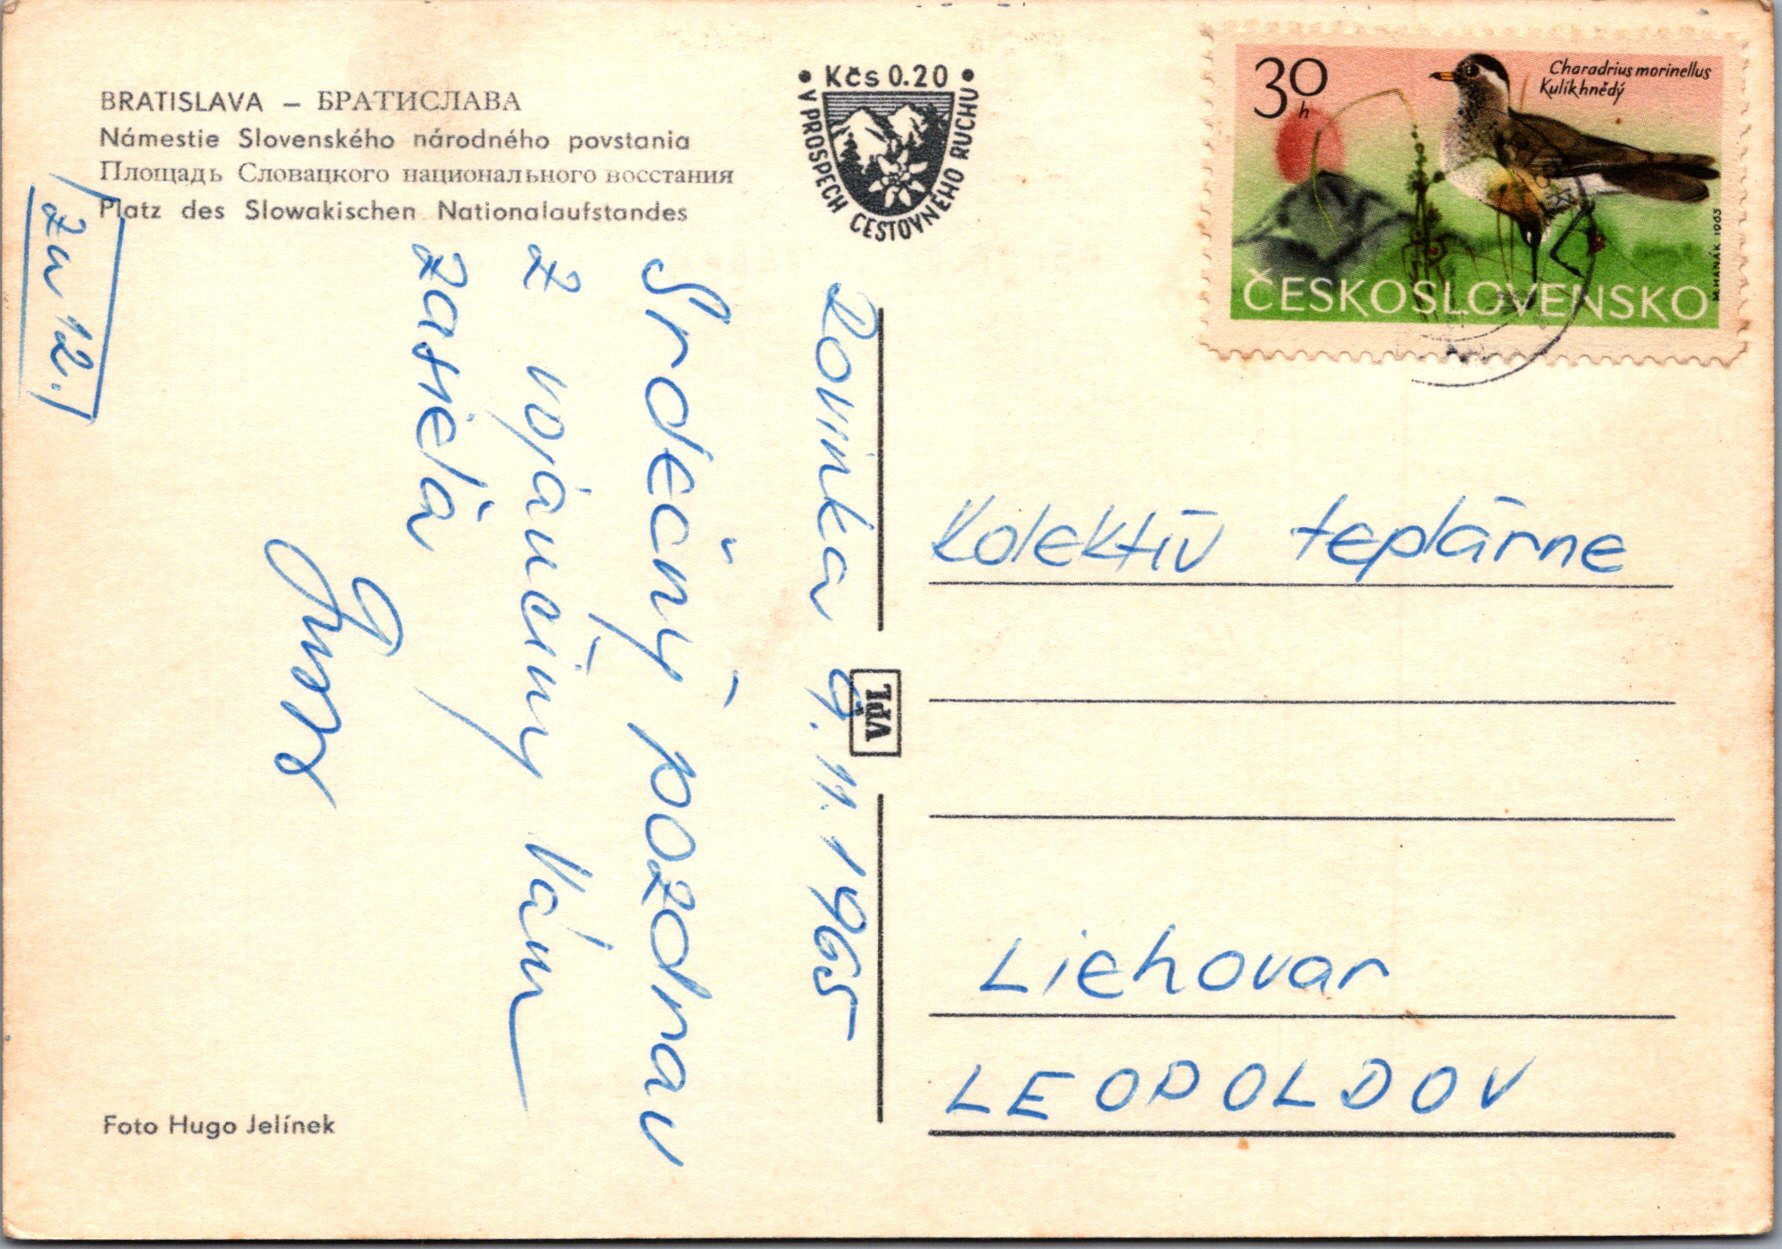 BRATISLAVA – БРАТИСЛАВА
Námestie Slovenského národného povstania
Площадь Словацкого национального восстания
Platz des Slowakischen Nationalaufstandes
• Kčs 0.20 •
V PROSPECH CESTOVNÉHO RUCHU
30 h
Charadrius morinellus
Kulík hnědý
ČESKOSLOVENSKO
M. HANÁK 1965
zu 12.
Rovinka 9.11.1965
Srdečný pozdrav
z vojančiny Vám
zasiela
VpL
Kolektív teplárne
Liehovar
LEOPOLDOV
Foto Hugo Jelínek